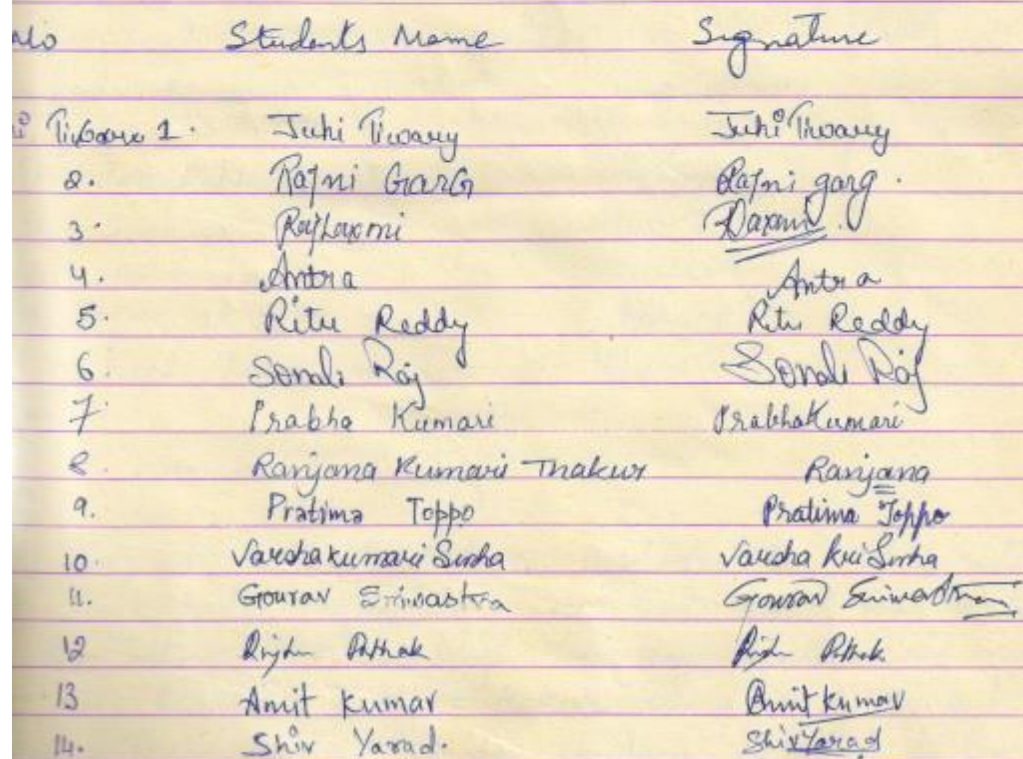 No Students Name Signature
1. Juhi Tiwary Juhi Tiwary
2. Rajni GarG Rajni garg.
3. RajLaxmi
4. Antra Antra
5. Ritu Reddy Ritu Reddy
6. Sonali Raj Sonali Raj
7 Prabha Kumari Prabha Kumari
8. Ranjana Kumari Thakur Ranjana
9. Pratima Toppo Pratima Toppo
10. Varsha kumari Sinha Varsha kri Sinha
11. Gourav Srivastva Gourav
12 Pathak Pathak
13 Amit Kumar Amit Kumar
14. Shiv Yarad. Shiv Yarad